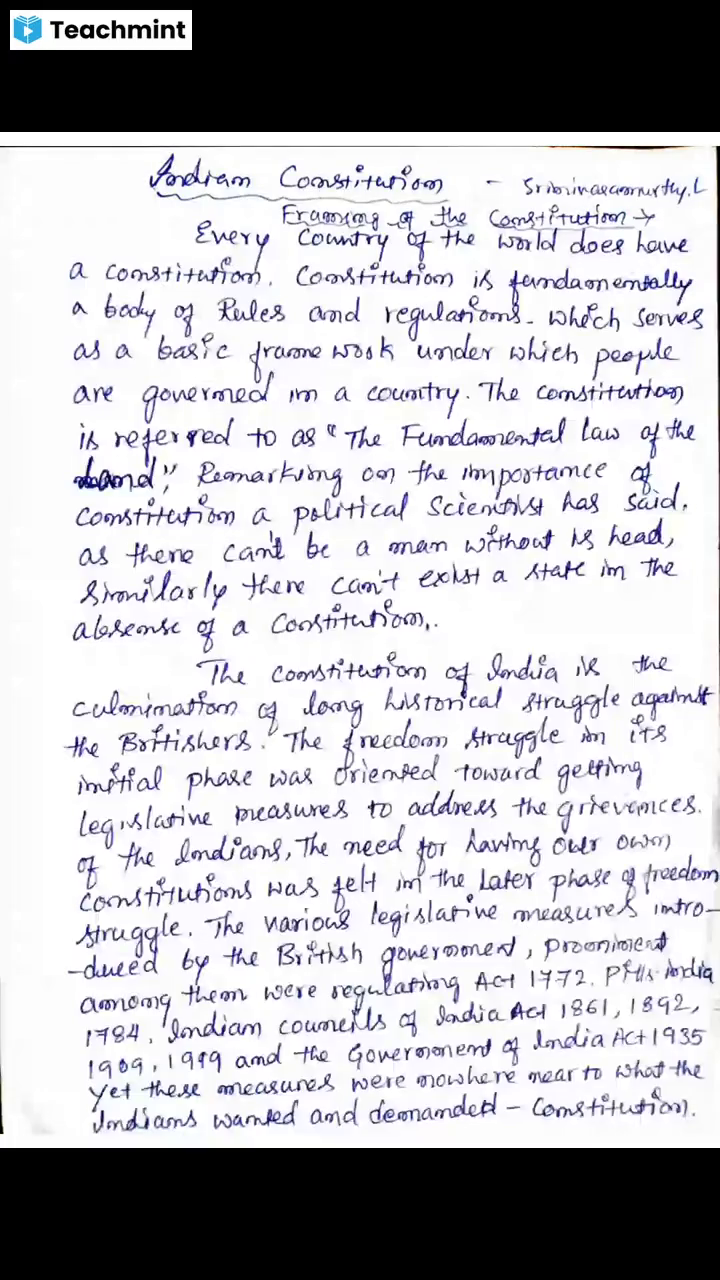 Teachmint
Indian Constitution - Srinivasamurthy.L
Framing of the Constitution →
Every Country of the world does have
a constitution. Constitution is fundamentally
a body of Rules and regulations. which serves
as a basic frame work under which people
are governed in a country. The constitution
is referred to as "The Fundamental law of the
land," Remarking on the importance of
constitution a political Scientist has said,
as there can't be a man without is head,
similarly there can't exist a state in the
absense of a Constitution.
The constitution of India is the
culmination of long historical struggle against
the Brittishers. The freedom struggle in its
initial phase was oriented toward getting
legislative measures to address the grievences.
of the Indians, The need for having our own
constitutions was felt in the Later phase of freedom
struggle. The various legislative measures intro-
-duced by the British government, prominent
among them were regulating Act 1772. Pitts india
1784, Indian councils of India Act 1861, 1892,
1909, 1919 and the Government of India Act 1935
Yet these measures were nowhere near to what the
Indians wanted and demanded - Constitution.